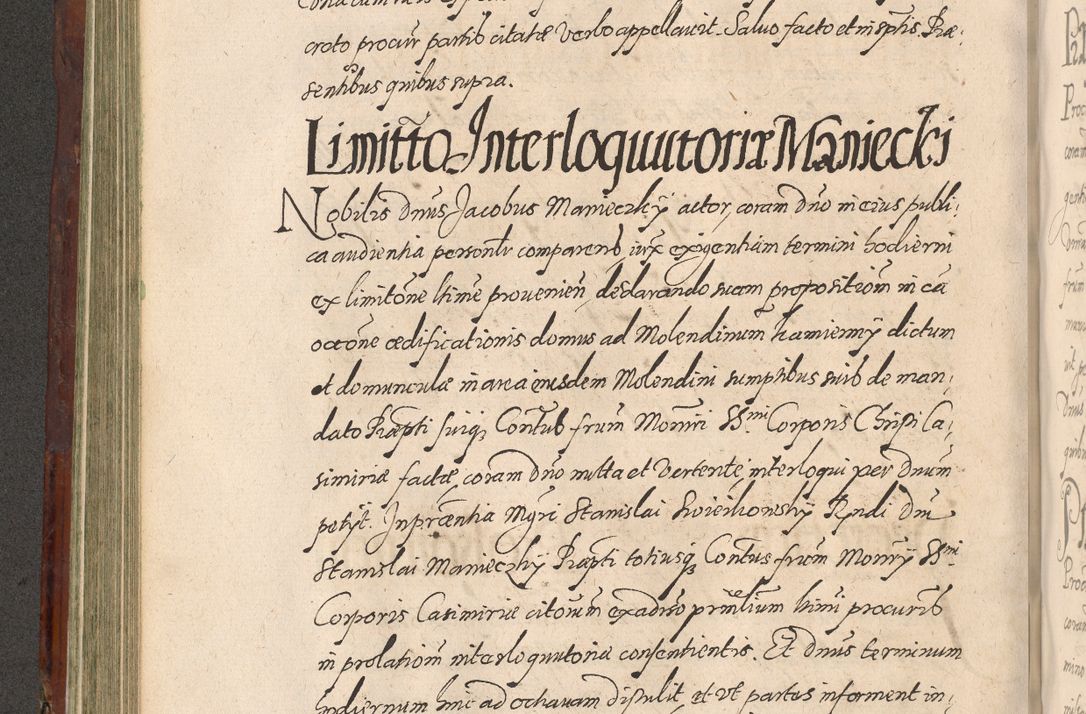 croto procur partis citatæ verbo appellavit. Salvo facto et in sptis. Præ,
sentibus quibus supra.
Limitto Interloquutoriæ Maniecki
Nobilis Dnus Jacobus Manieczky actor, coram Dno in eius publi,
ca audientia personlr comparens, iux exigentiam termini hodierni
ex limitone ltime provenien, declarando suam propositiom in ca
occone ædificationis domus ad Molendinum kamienny dictum
et domunculæ in area eiusdem Molendini sumptibus suis de man,
dato Præpti suiq Contus frum Monrri SSmi Corporis Chripi Ca,
simiriæ factæ, coram Dno nutta et vertente, interloqui per Dnum
petyt. In præntia Mgri Stanislai Rndi Dni
Stanislai Manieczky Præpti totiusq Contus frum Monrry SSmi
Corporis Casimiriæ citorum ex adverso prnlium ltimi procuris
in prolatiom interloquutoria consentientis. Et Dnus terminum
hodiernum hinc ad octavam distulit, et ut partes informent in,
Proc
coram
Dnus